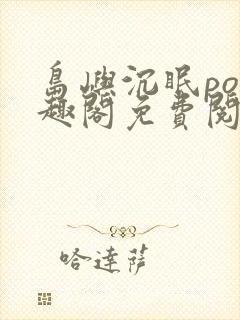 島嶼沉眠po
趣閣免費閱
哈達薩